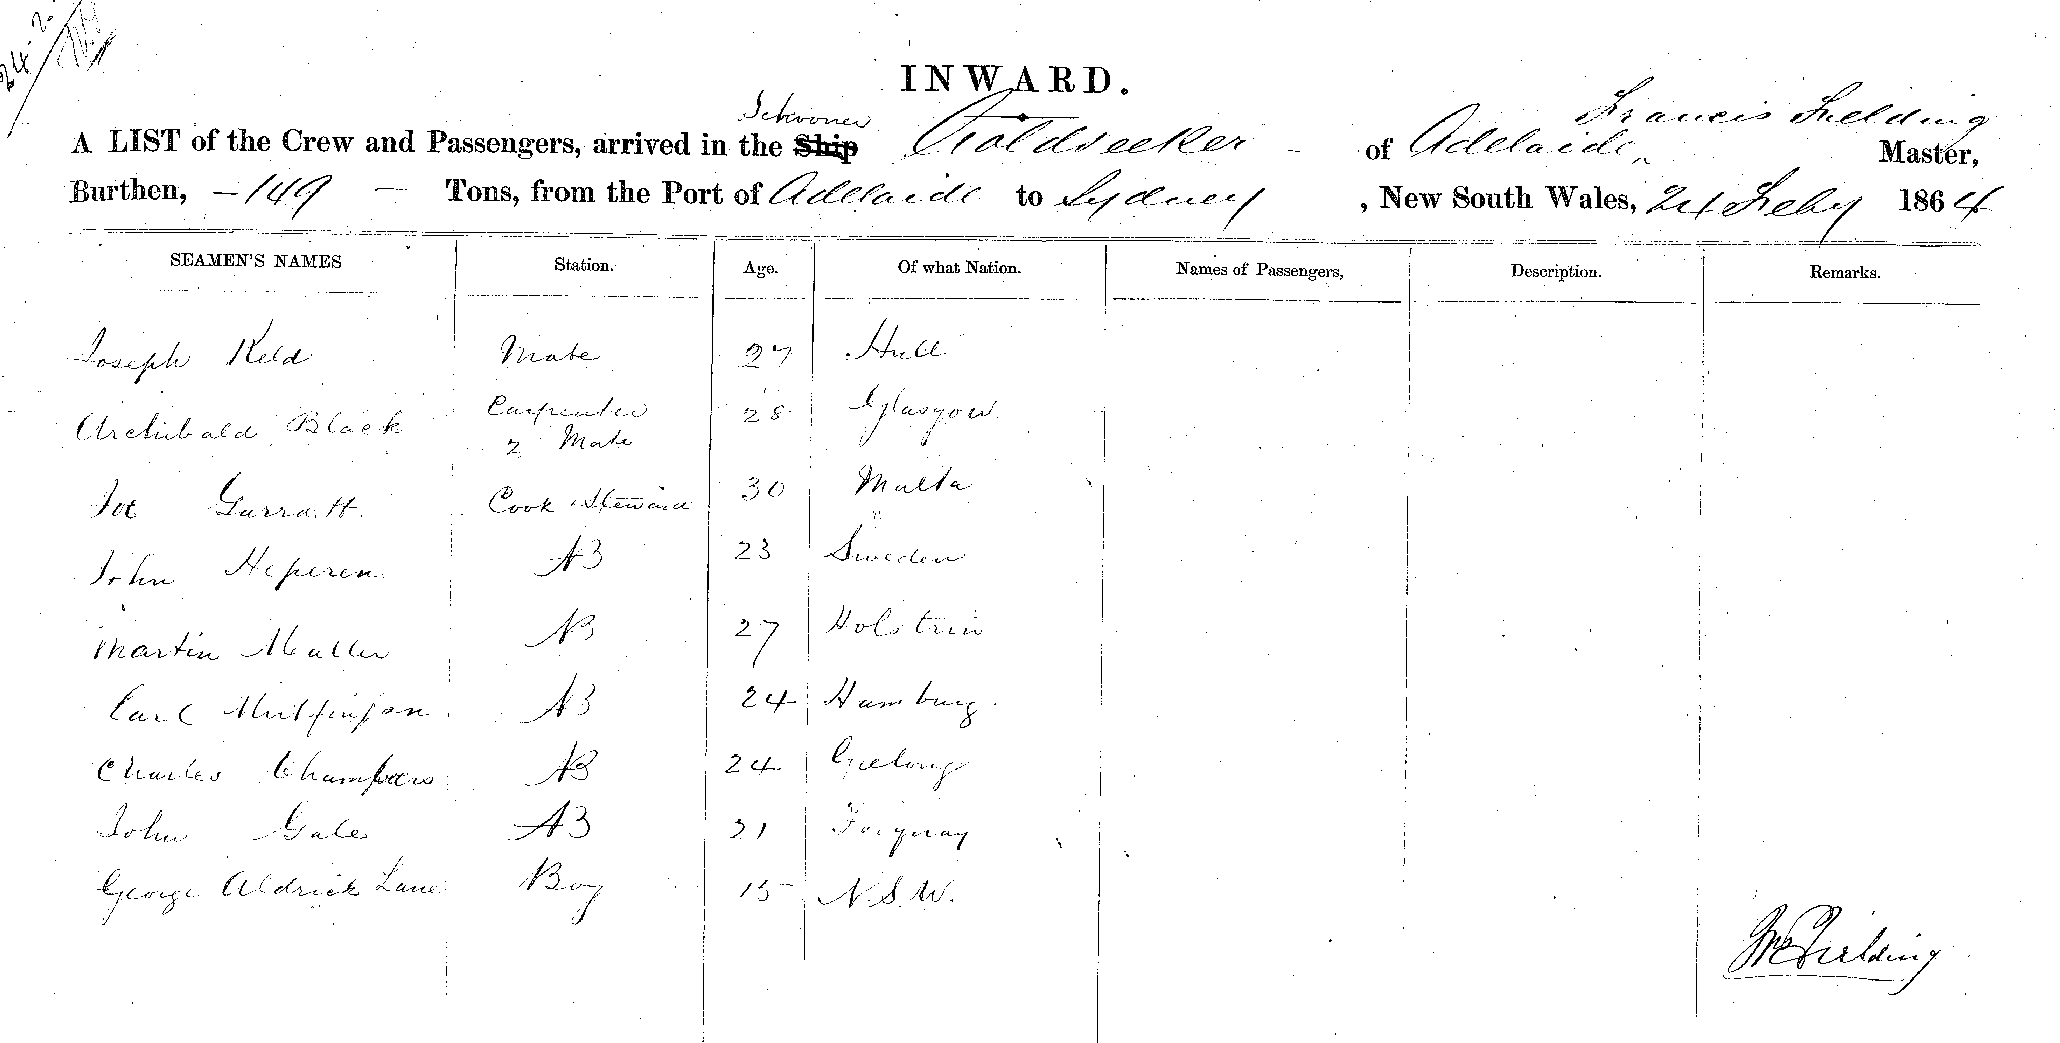 24/2
INWARD.
Schooner Francis Fielding
A LIST of the Crew and Passengers, arrived in the Ship Goldseeker - of Adelaide Master,
Burthen, - 149 - Tons, from the Port of Adelaide to Sydney , New South Wales, 24 Feby 1864
SEAMEN'S NAMES Station. Age. Of what Nation. Names of Passengers, Description. Remarks.
Joseph Keld Mate 27 Hull
Archibald Black Carpenter 28 Glasgow
2 Mate
Joe Garratt Cook & Steward 30 Malta
John Heperen AB 23 Sweden
Martin Muller AB 27 Holstein
Carl AB 24 Hamburg
Charles Chambers AB 24 Geelong
John Gale AB 21 Torquay
George Aldrick Lane Boy 15 N.S.W.
Fielding